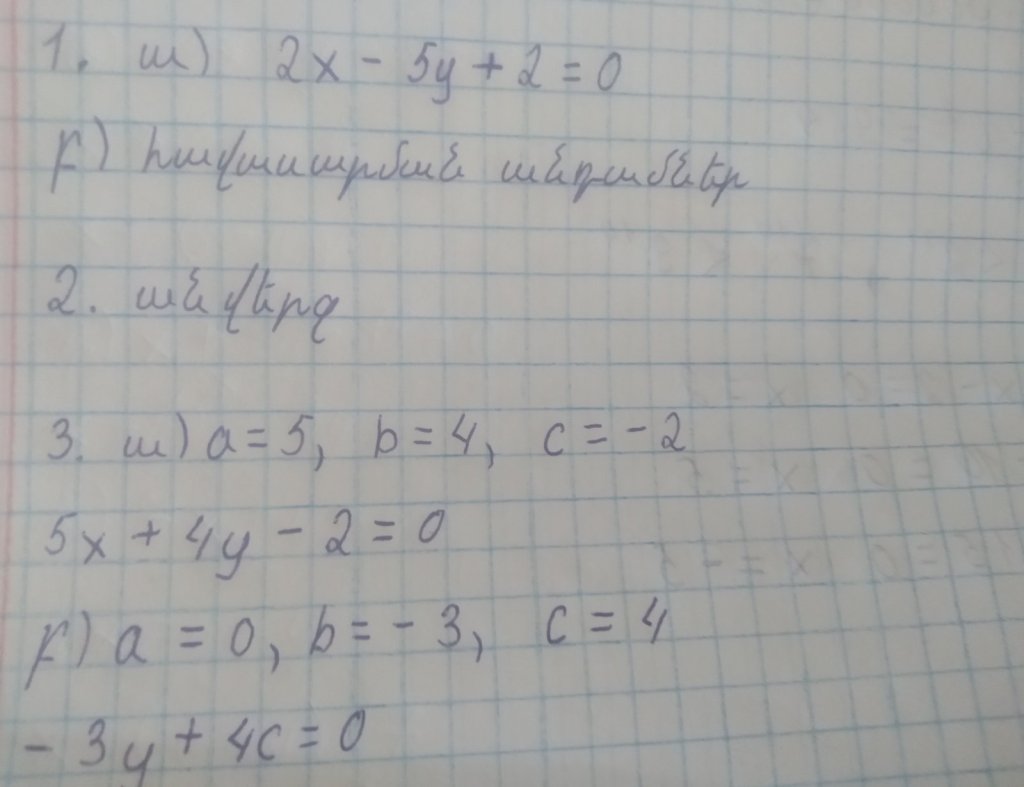 1. ա) 2x - 5y + 2 = 0
բ) հավասարման անդամներ
2. անվերջ
3. ա) a = 5, b = 4, c = -2
5x + 4y - 2 = 0
բ) a = 0, b = - 3, c = 4
- 3y + 4c = 0